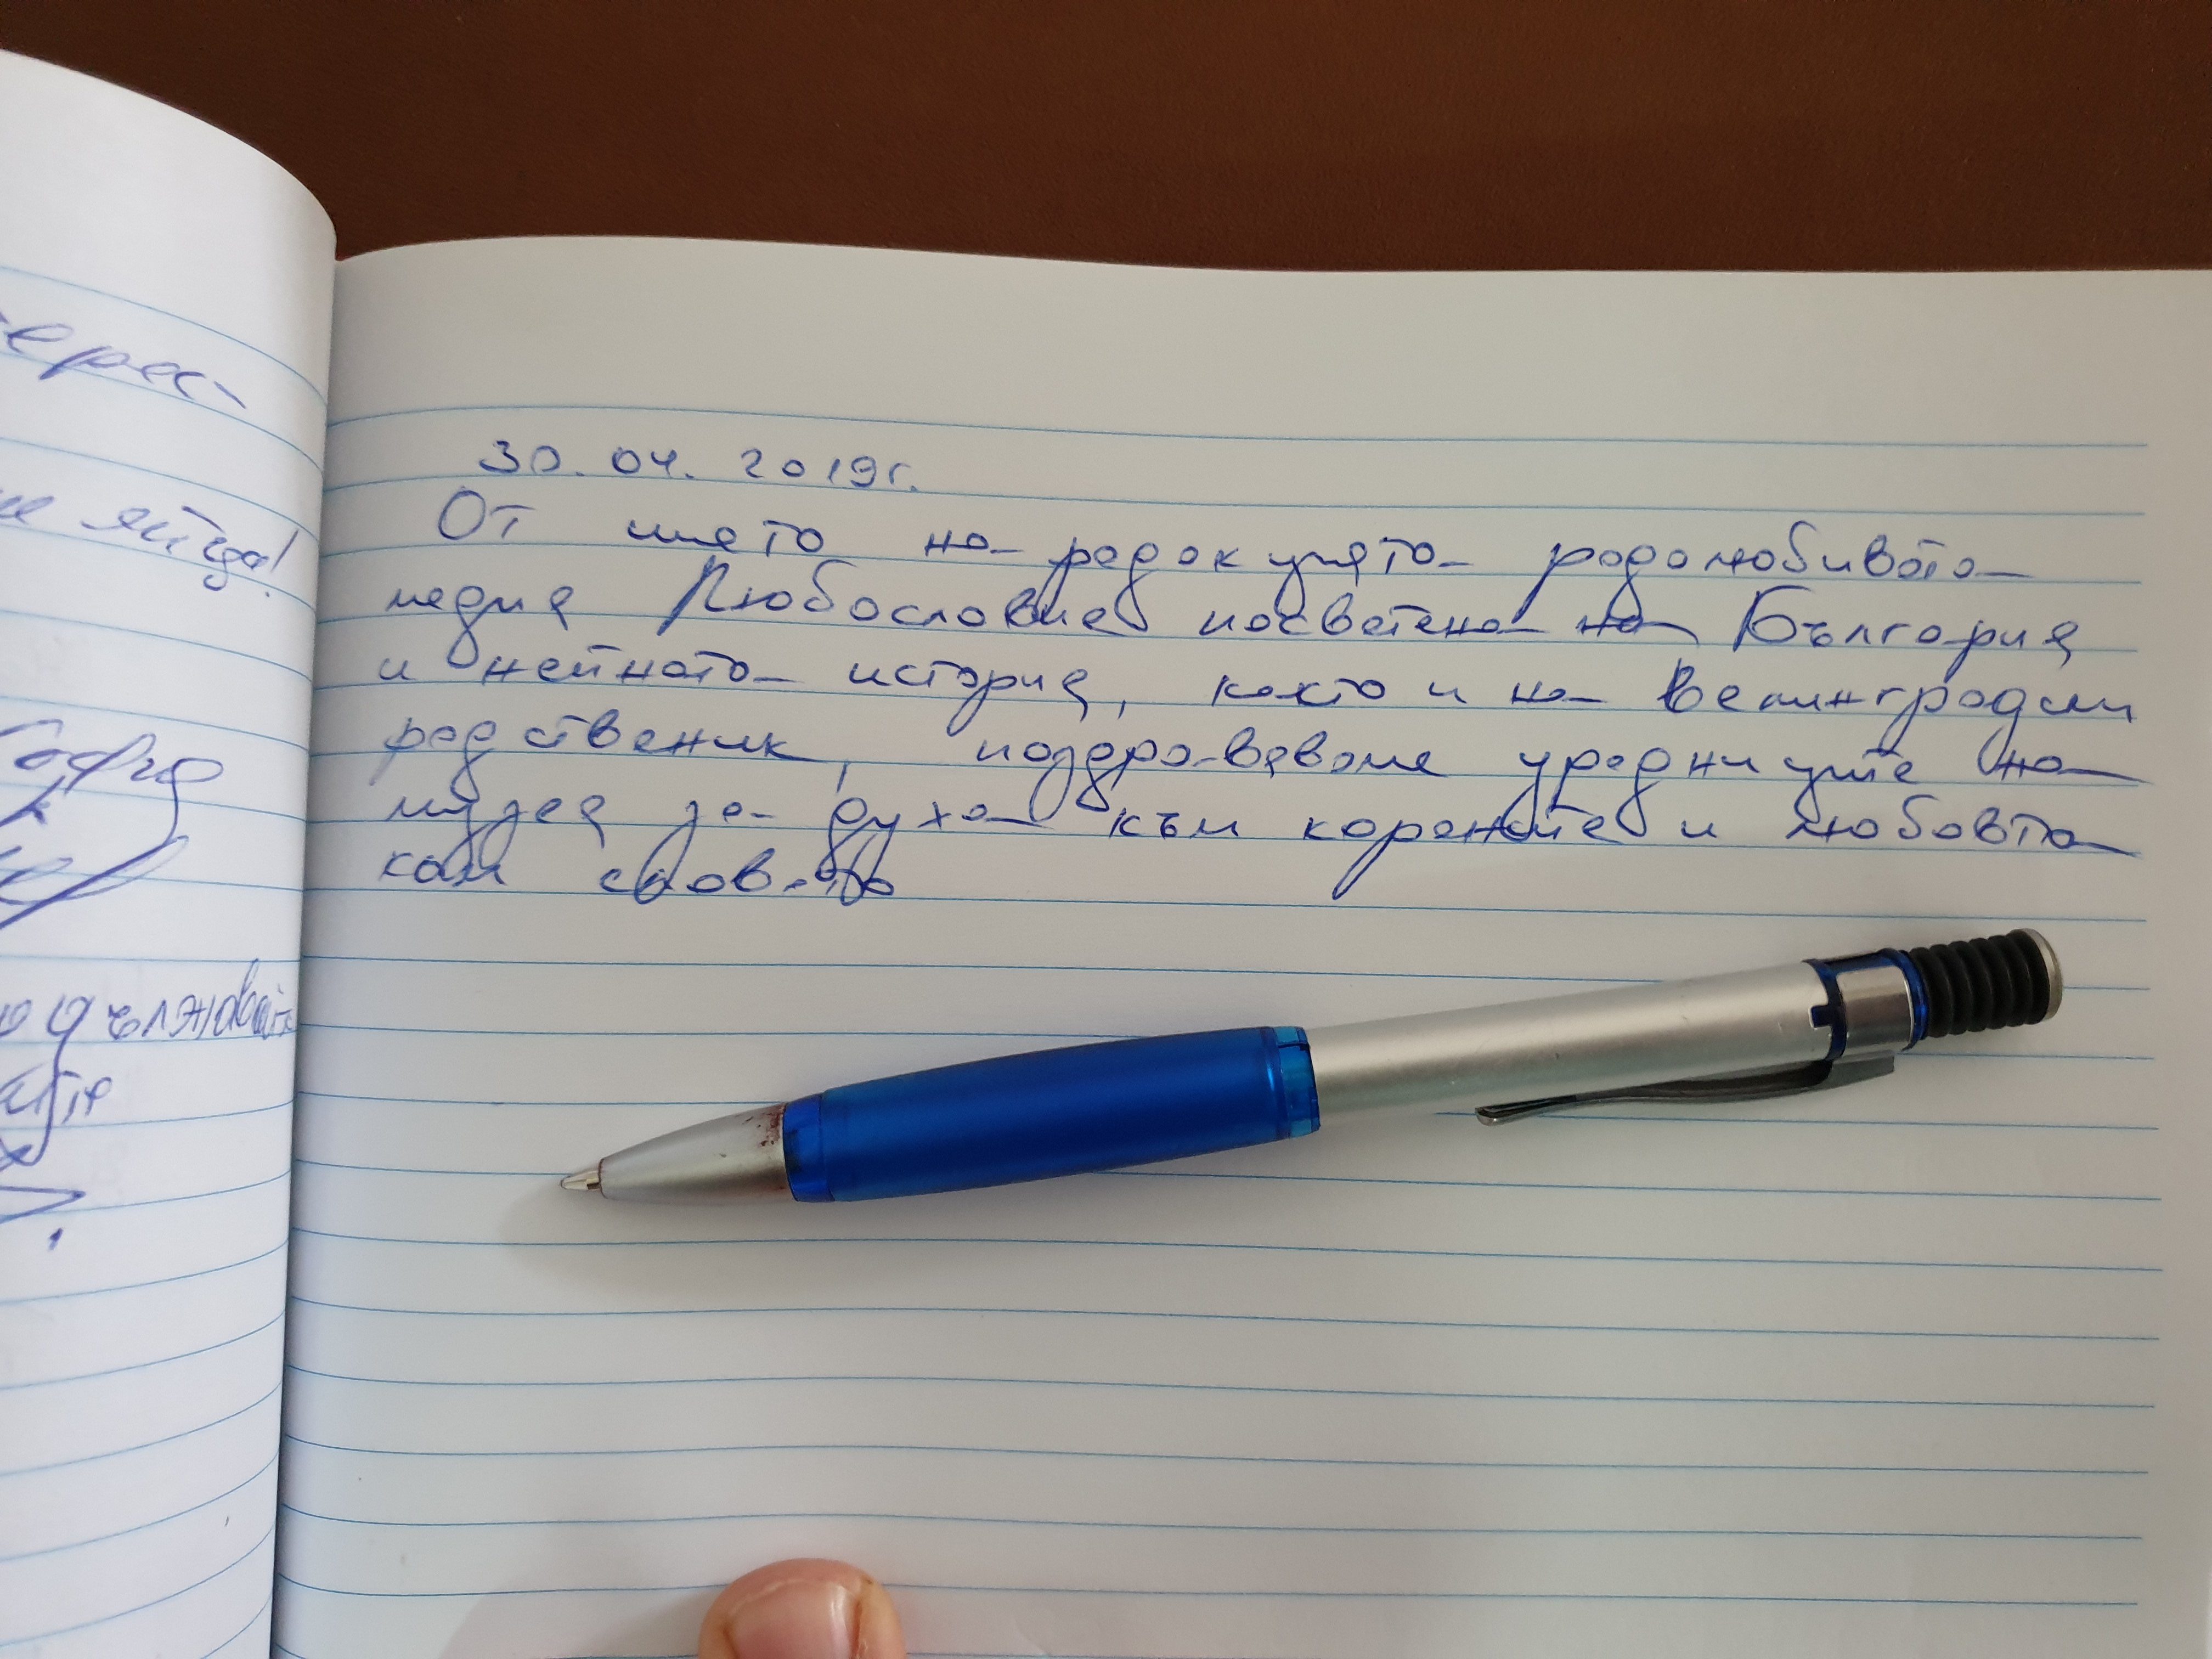 30.04.2019г.
От името на редакцията родолюбивата
медия Любословие посветена на България
и нейната история, както и на Велинградски
родственик, поздравяваме уредниците на
музея за духа към корените и любовта
към словото
София
ерес-